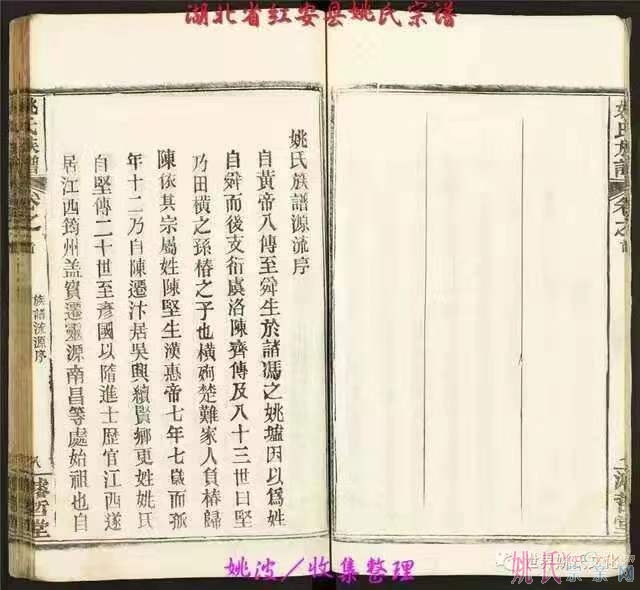 湖北省红安县姚氏宗谱
姚氏族譜源流序
自黃帝八傳至舜生於諸馮之姚墟因以爲姓
自舜而後支衍虞洛陳齊傳及八十三世曰堅
乃田橫之孫椿之子也橫殉楚難家人負椿歸
陳依其宗屬姓陳堅生漢惠帝七年七歲而孤
年十二乃自陳遷汴居吳興續賢鄉更姓姚氏
自堅傳二十世至彥國以隋進士歷官江西遂
居江西筠州盖實遷靈源南昌等處始祖也自
姚氏族譜
卷之首
族譜流源序
八
濬哲堂
姚氏族譜
卷之首
姚波／收集整理
世界姚氏文化
姚氏